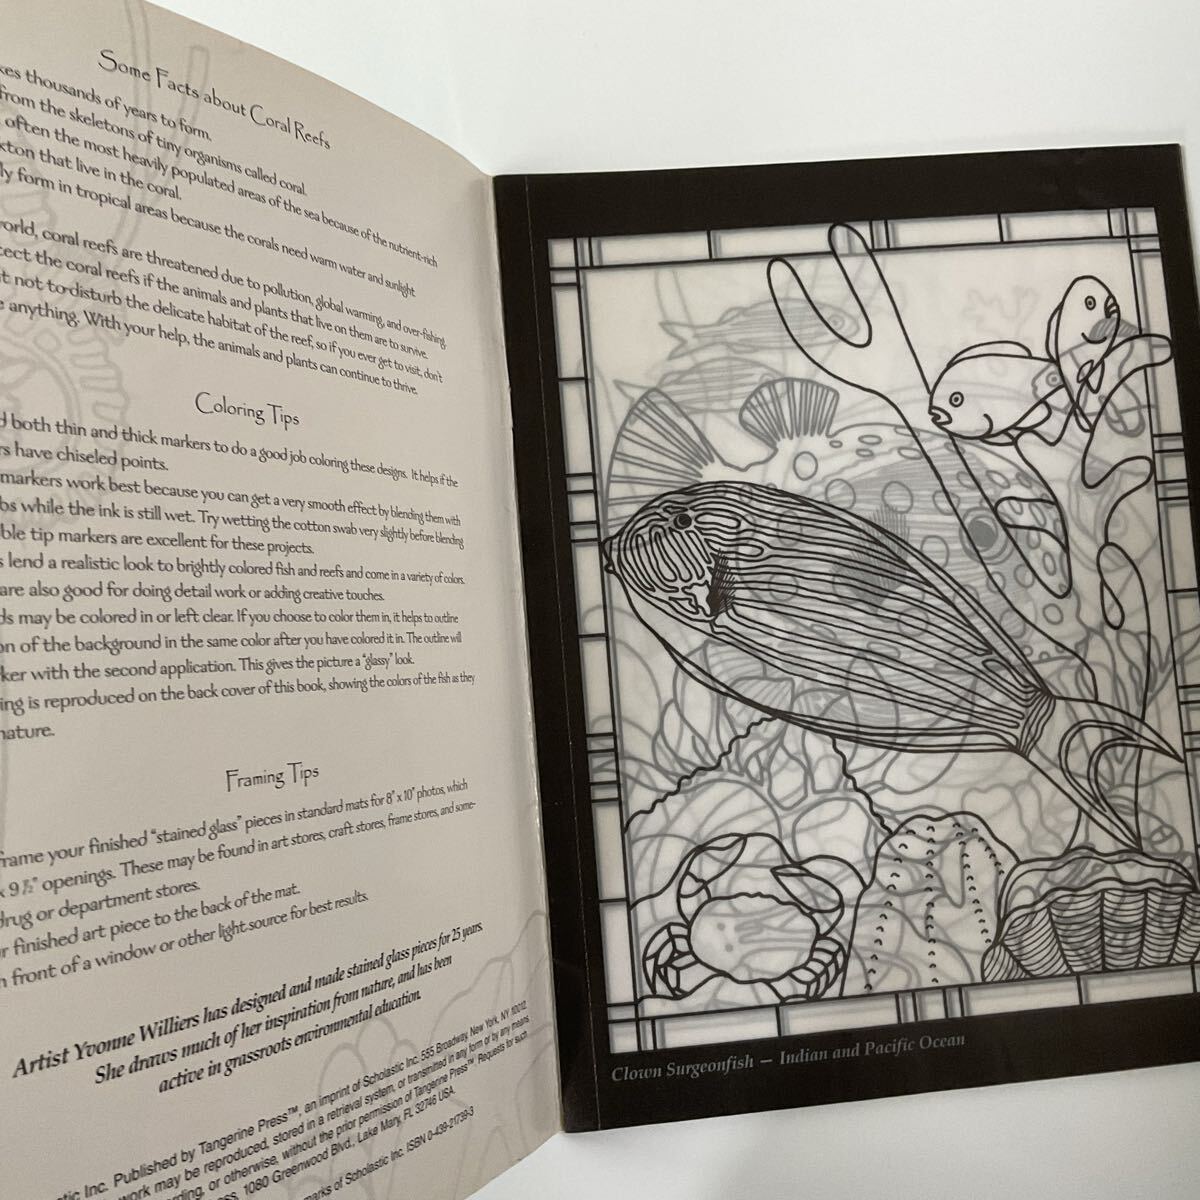 Some Facts about Coral Reefs
thousands of years to form.
from the skeletons of tiny organisms called coral.
often the most heavily populated areas of the sea because of the nutrient-rich
that live in the coral.
form in tropical areas because the corals need warm water and sunlight
world, coral reefs are threatened due to pollution, global warming, and over-fishing.
the coral reefs if the animals and plants that live on them are to survive.
not to disturb the delicate habitat of the reef, so if you ever get to visit, don't
anything. With your help, the animals and plants can continue to thrive.
Coloring Tips
both thin and thick markers to do a good job coloring these designs. It helps if the
have chiseled points.
markers work best because you can get a very smooth effect by blending them with
while the ink is still wet. Try wetting the cotton swab very slightly before blending
tip markers are excellent for these projects.
lend a realistic look to brightly colored fish and reefs and come in a variety of colors.
are also good for doing detail work or adding creative touches.
may be colored in or left clear. If you choose to color them in, it helps to outline
of the background in the same color after you have colored it in. The outline will
with the second application. This gives the picture a "glassy" look.
is reproduced on the back cover of this book, showing the colors of the fish as they
nature.
Framing Tips
frame your finished "stained glass" pieces in standard mats for 8" x 10" photos, which
x 9 ½" openings. These may be found in art stores, craft stores, frame stores, and some-
drug or department stores.
finished art piece to the back of the mat.
front of a window or other light source for best results.
Artist Yvonne Williers has designed and made stained glass pieces for 25 years.
She draws much of her inspiration from nature, and has been
active in grassroots environmental education.
Inc. Published by Tangerine Press™, an imprint of Scholastic Inc. 555 Broadway, New York, NY 10012
work may be reproduced, stored in a retrieval system, or transmitted in any form or by any means
or otherwise, without the prior permission of Tangerine Press™ Requests for such
1080 Greenwood Blvd., Lake Mary, FL 32746 USA
of Scholastic Inc. ISBN 0-439-21739-3
Clown Surgeonfish — Indian and Pacific Ocean